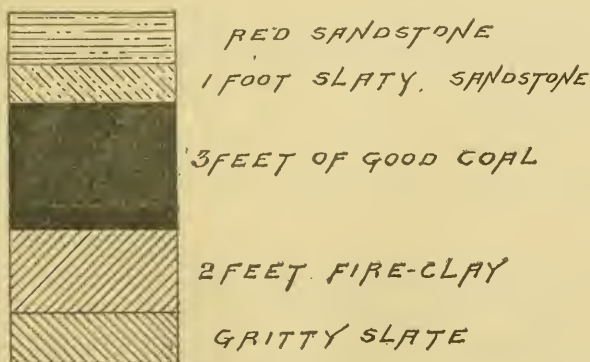 RED SANDSTONE
1 FOOT SLATY. SANDSTONE
3 FEET OF GOOD COAL
2 FEET FIRE-CLAY
GRITTY SLATE